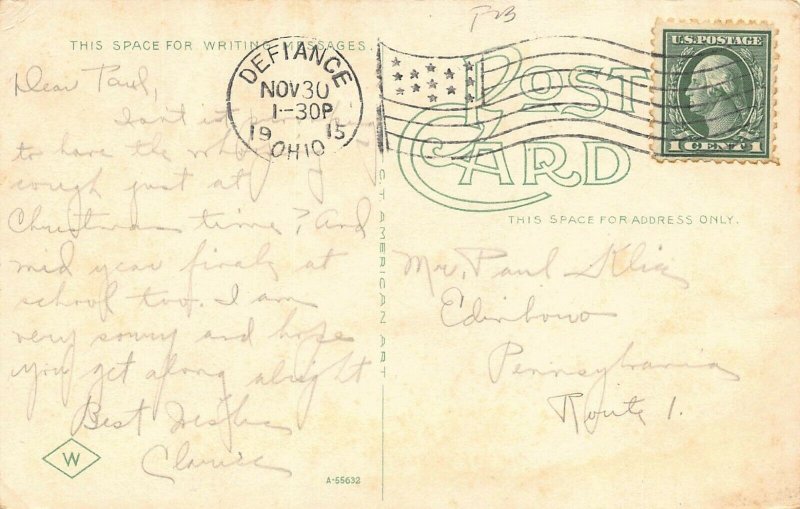 THIS SPACE FOR WRITING MESSAGES.
Dear Paul,
to have the
cough just at
Christmas time? And
mid year finals at
school too. I am
very sorry and hope
you get along alright
Best Wishes
Clarice
W
A-55632
CT AMERICAN ART
DEFIANCE
NOV 30
1-30P
1915
OHIO
U.S. POSTAGE
1 CENT 1
POST
CARD
THIS SPACE FOR ADDRESS ONLY.
Mr. Paul
Edinboro
Pennsylvania
Route 1.